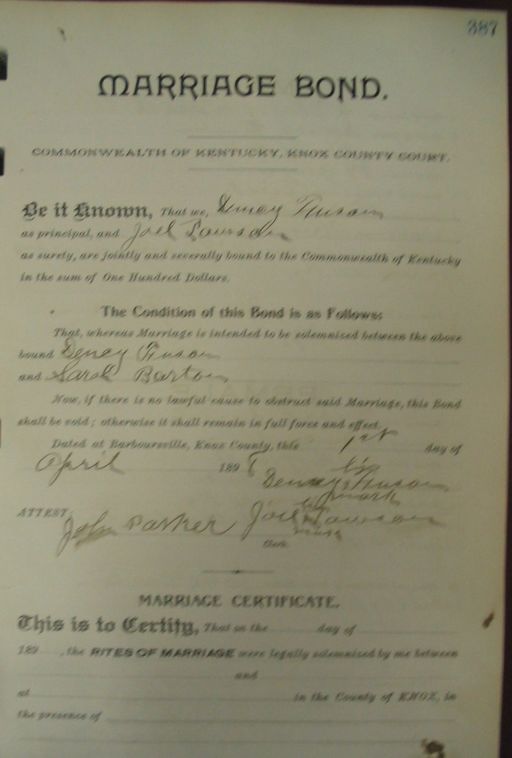 387
MARRIAGE BOND.
COMMONWEALTH OF KENTUCKY, KNOX COUNTY COURT.
Be it Known, That we,
as principal, and Joel Lawson
as surety, are jointly and severally bound to the Commonwealth of Kentucky
in the sum of One Hundred Dollars.
The Condition of this Bond is as Follows:
That, whereas Marriage is intended to be solemnized between the above
bound
and Sarah Barton
Now, if there is no lawful cause to obstruct said Marriage, this Bond
shall be void; otherwise it shall remain in full force and effect.
Dated at Barboursville, Knox County, this 1st day of
April 189
his
mark
ATTEST: John Parker Joel Lawson
mark
Clerk.
MARRIAGE CERTIFICATE.
This is to Certify, That on the day of
189 , the RITES OF MARRIAGE were legally solemnized by me between
and
at in the County of KNOX, in
the presence of